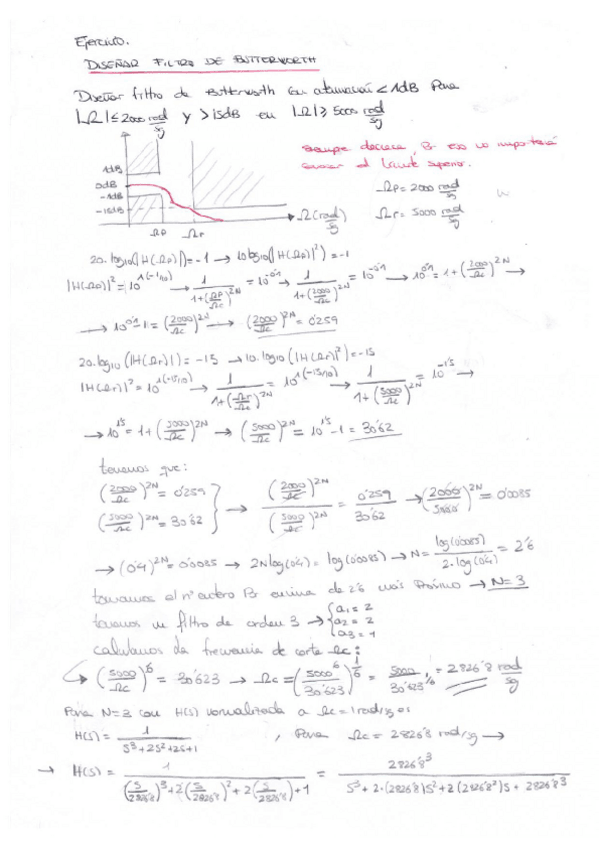 Ejercicio.
DISEÑAR FILTRO DE BUTTERWORTH
Diseñar filtro de Butterworth con atenuación < 1dB para
|Ω| ≤ 2000 rad/sg y > 15dB en |Ω| ≥ 5000 rad/sg
siempre decrece, Pr eso no importará
conocer el límite superior.
1dB
0dB
-1dB
-15dB
Ωp Ωr
Ω (rad/sg)
Ωp = 2000 rad/sg
Ωr = 5000 rad/sg
20·log10(|H(Ωp)|) = -1 → 10log10(|H(Ωp)|²) = -1
|H(Ωp)|² = 10^1(-1/10) → 1/(1+(Ωp/Ωc)^2N) = 10^-0'1 → 1/(1+(2000/Ωc)^2N) = 10^-0'1 → 10^0'1 = 1+(2000/Ωc)^2N →
→ 10^0'1 - 1 = (2000/Ωc)^2N → (2000/Ωc)^2N = 0'259
20·log10(|H(Ωr)|) = -15 → 10·log10(|H(Ωr)|²) = -15
|H(Ωr)|² = 10^1(-15/10) → 1/(1+(Ωr/Ωc)^2N) = 10^1(-15/10) → 1/(1+(5000/Ωc)^2N) = 10^-1'5 →
→ 10^1'5 = 1+(5000/Ωc)^2N → (5000/Ωc)^2N = 10^1'5 - 1 = 30'62
tenemos que:
(2000/Ωc)^2N = 0'259
(5000/Ωc)^2N = 30'62
→ (2000/Ωc)^2N / (5000/Ωc)^2N = 0'259/30'62 → (2000/5000)^2N = 0'0085
→ (0'4)^2N = 0'0085 → 2N log(0'4) = log(0'0085) → N = log(0'0085)/(2·log(0'4)) = 2'6
tomamos el nº entero Pr encima de 2'6 más Próximo → N = 3
tenemos un filtro de orden 3 → { a1 = 2
a2 = 2
a3 = 1
calculamos la frecuencia de corte Ωc:
(5000/Ωc)^6 = 30'623 → Ωc = (5000^6/30'623)^1/6 = 5000/30'623^1/6 = 2826'8 rad/sg
Para N=3 con H(s) normalizada a Ωc = 1rad/sg es
H(s) = 1/(s³+2s²+2s+1) , Para Ωc = 2826'8 rad/sg →
→ H(s) = 1/((s/2826'8)³+2(s/2826'8)²+2(s/2826'8)+1) = 2826'8³/(s³+2·(2826'8)s²+2(2826'8²)s+2826'8³)